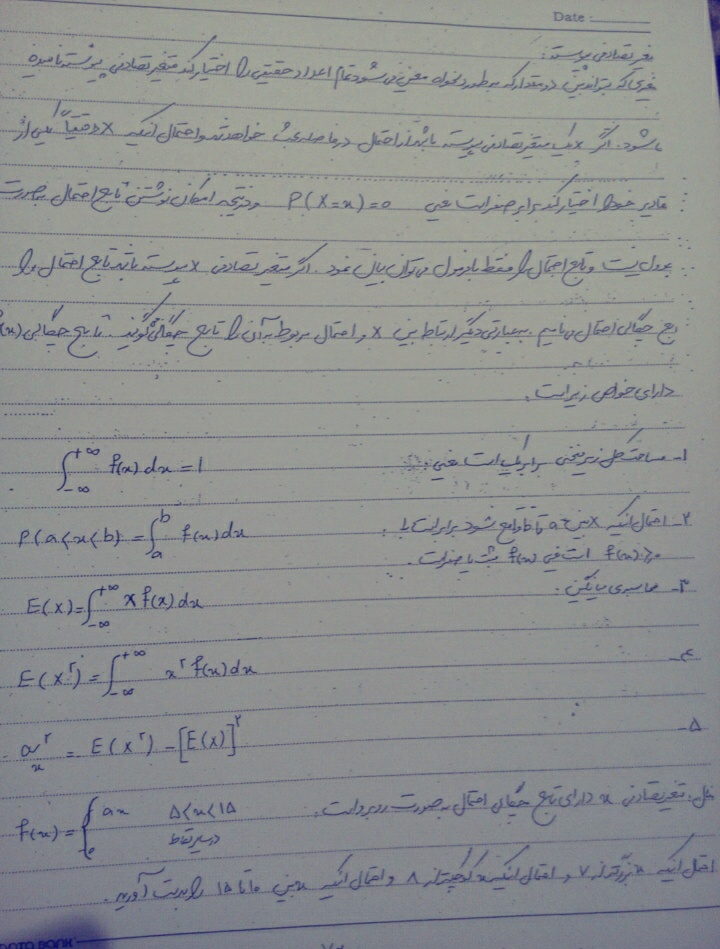 Date :
متغیر تصادفی پیوسته :
متغیری که بتواند بین دو مقدار که به طور دلخواه معین می شود تمام اعداد حقیقی را اختیار کند متغیر تصادفی پیوسته نامیده
می شود. اگر x یک متغیر تصادفی پیوسته باشد احتمال در فاصله بحث خواهد شد و احتمال اینکه x دقیقاً یکی از
مقادیر خود را اختیار کند برابر صفر است یعنی P(X=x)=0 و در نتیجه امکان نوشتن تابع احتمال به صورت
جدول نیست و تابع احتمال را فقط با فرمول می توان بیان نمود. اگر متغیر تصادفی x پیوسته باشد تابع احتمال را
تابع چگالی احتمال می نامیم. به عبارتی دیگر ارتباط بین x و احتمال مربوط به آن را تابع چگالی گویند. تابع چگالی (x)
دارای خواص زیر است.
۱- مساحت کل زیر منحنی برابر یک است یعنی : ∫_{-∞}^{+∞} f(x) dx = 1
۲- احتمال اینکه x بین a تا b واقع شود برابر است با . P(a<x<b) = ∫_a^b f(x) dx
f(x) ≥ 0 است یعنی f(x) مثبت یا صفر است.
۳- محاسبه ی میانگین : E(x) = ∫_{-∞}^{+∞} x f(x) dx
۴- E(x²) = ∫_{-∞}^{+∞} x² f(x) dx
۵- σ²_x = E(x²) - [E(x)]²
مثال: متغیر تصادفی x دارای تابع چگالی احتمال به صورت روبرو است. f(x) = { ax ۵<x<۱۵
0 در سایر نقاط
احتمال اینکه x بزرگتر از ۷ و احتمال اینکه x کوچکتر از ۸ و احتمال اینکه x بین ۱۰ تا ۱۵ را بدست آورید.